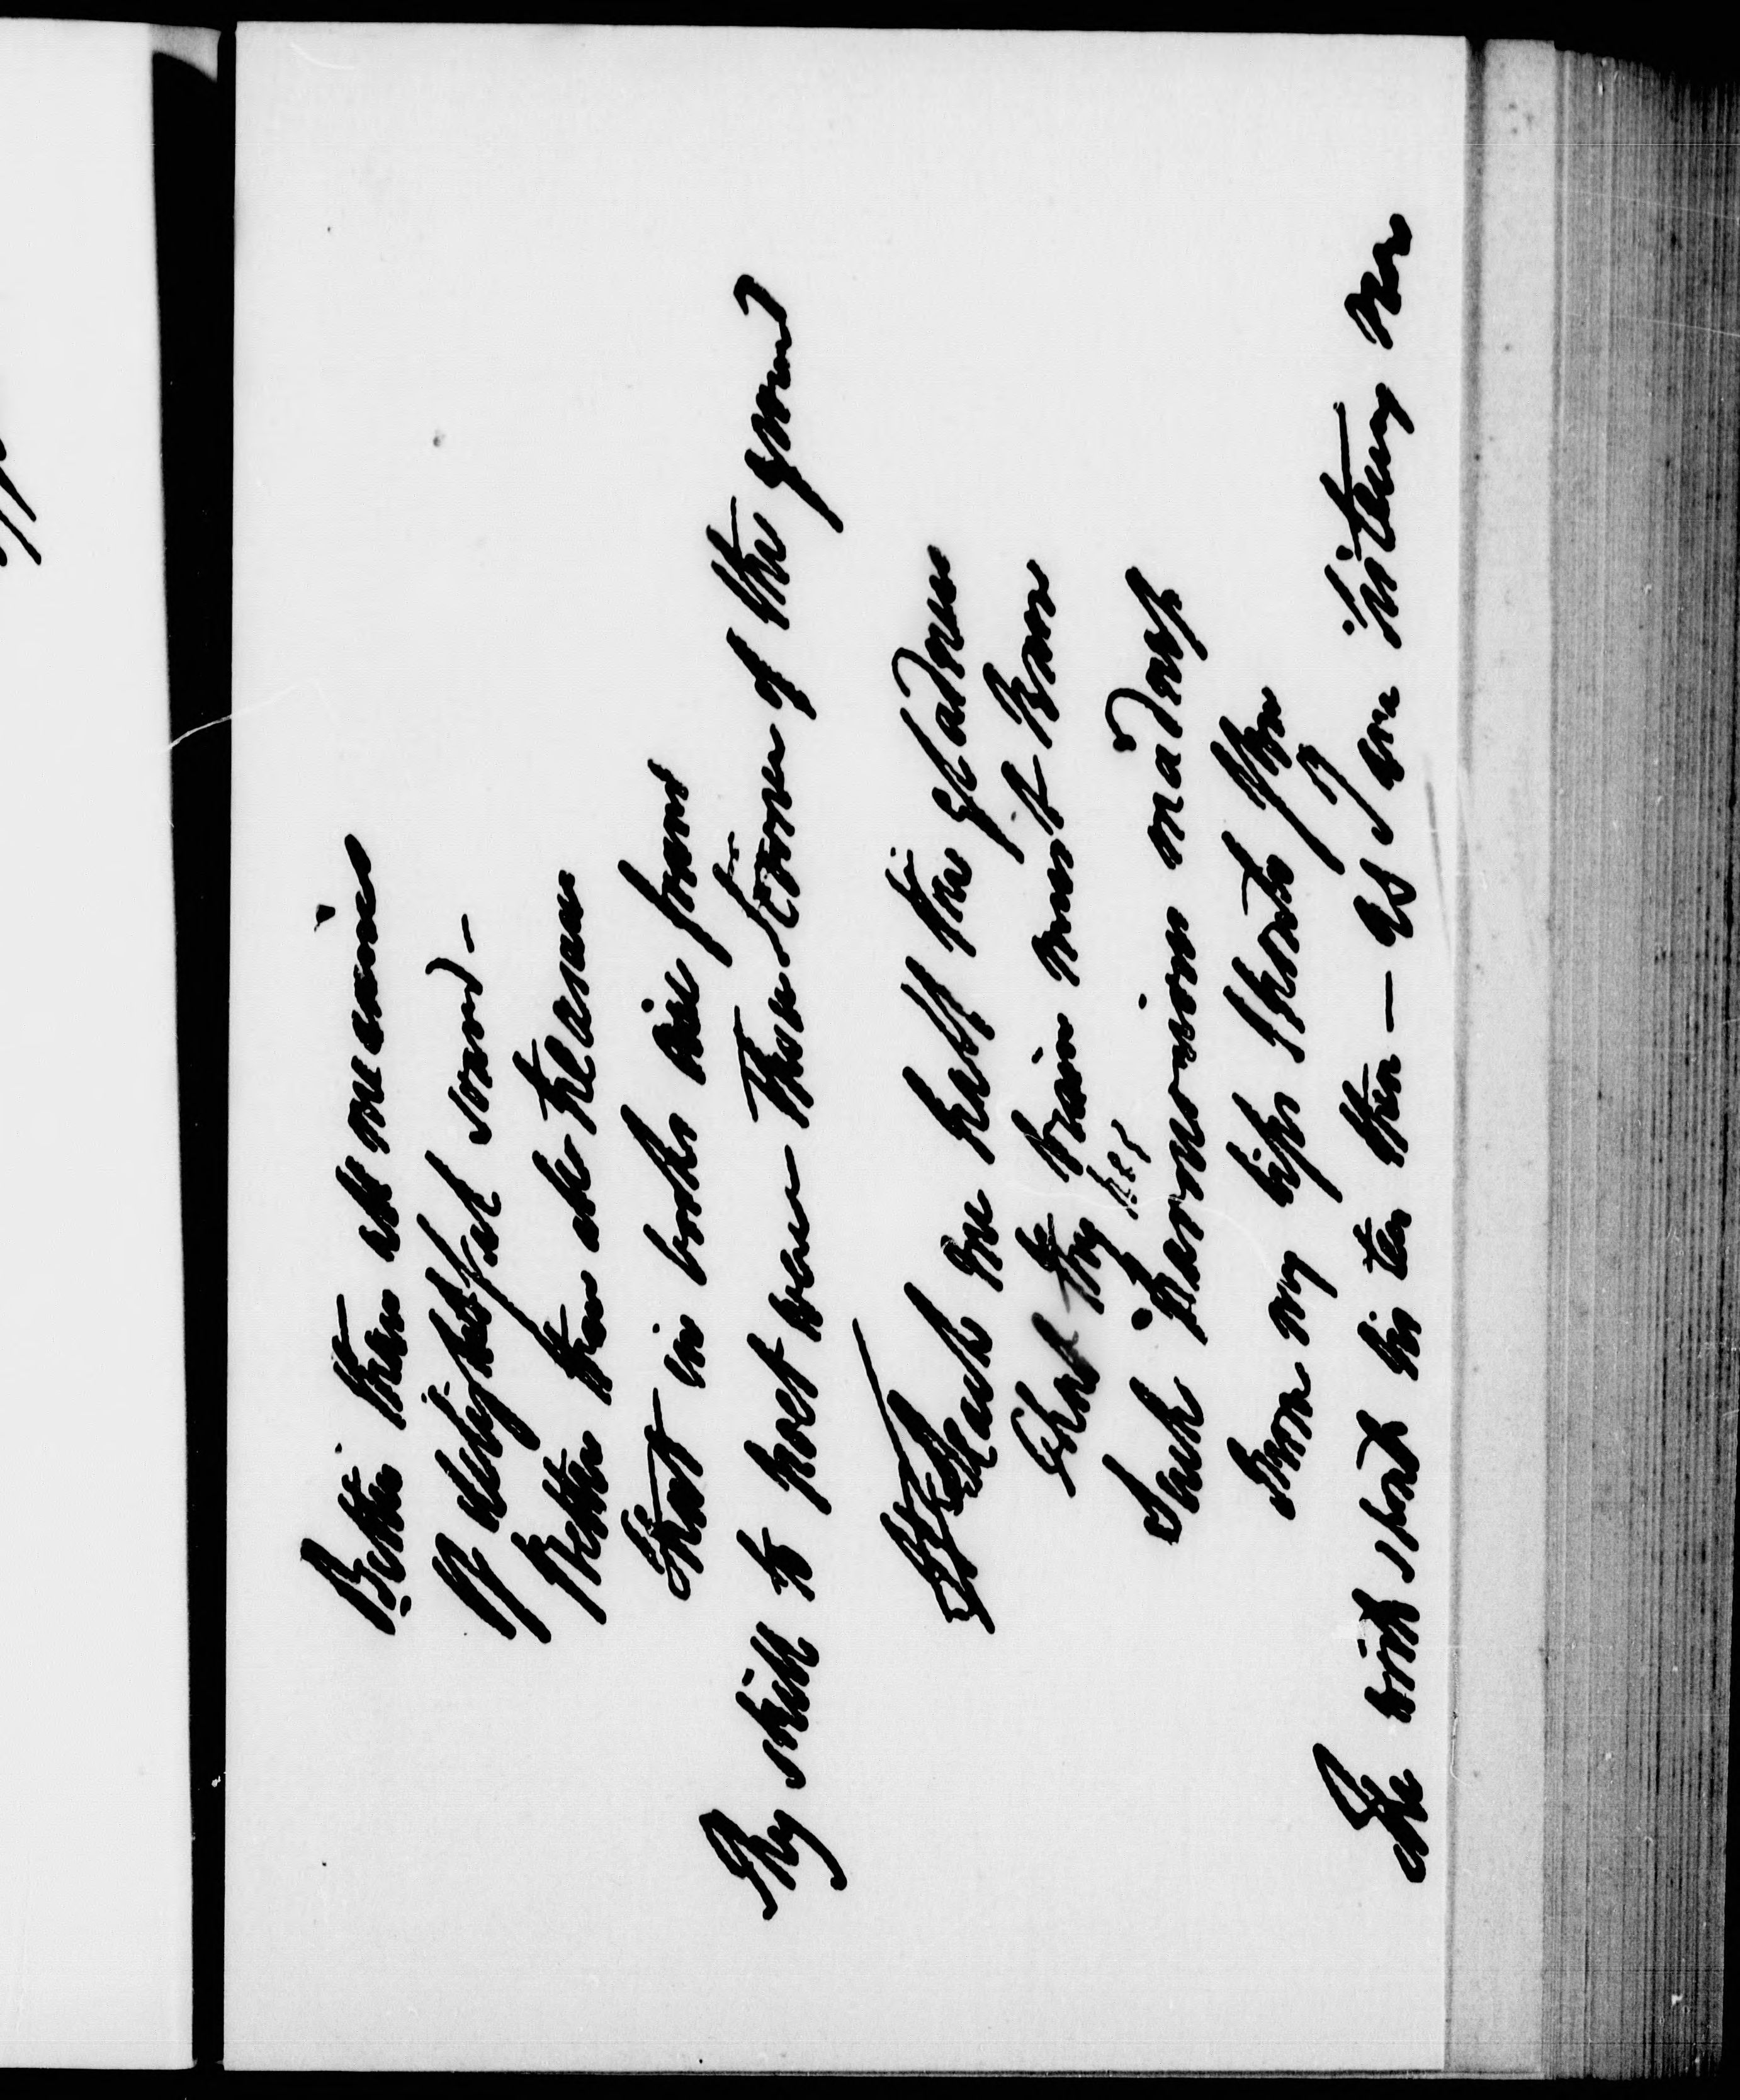 Better than all measures
Of delightful sound –
Better than all treasures
That in books are found
Thy skill to poet were Thou Scorner of the ground
Teach me half the gladness
That thy brain must know
Such harmonious madness
From my lips should flow
The world should listen then – as I am listening now